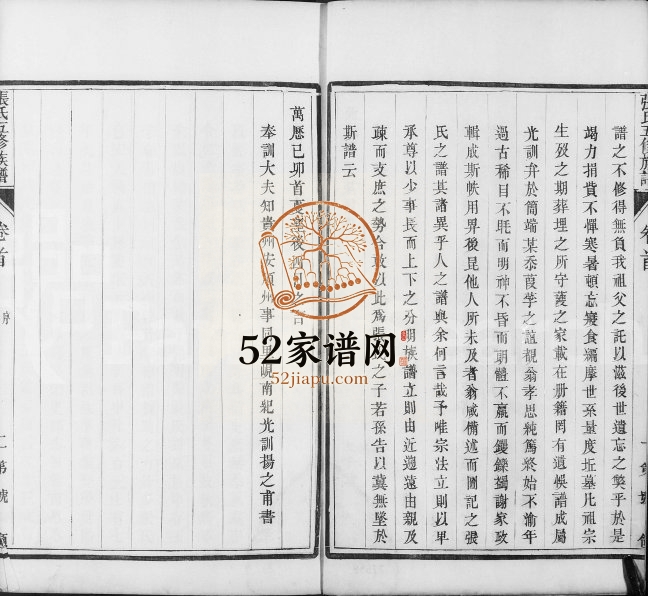 譜之不修得無負我祖父之託以滋後世遺忘之獘乎於是
竭力捐貲不憚寒暑頓忘寢食編摩世系量度坵墓凡祖宗
生歿之期葬埋之所守護之家載在册籍罔有遺悞譜成屬
光訓弁於簡端某忝葭莩之誼觀翁孝思純篤終始不渝年
過古稀目不眊而明神不昏而朗體不羸而钁鑠獨謝家政
輯成斯帙用畀後昆他人所未及者翁咸備述而圖記之張
氏之譜其諸異乎人之譜與余何言哉予唯宗法立則以卑
承尊以少事長而上下之分明族譜立則由近遡遠由親及
疎而支庶之勢合 以此為張 之子若孫告以冀無墜於
斯譜云
萬厯己卯首夏 後
奉訓大夫知貴州安順州事同 峴南紀光訓揚之甫書
張氏五修族譜
卷首
序
二
張氏五修族譜
卷首
52家谱网
52jiapu.com